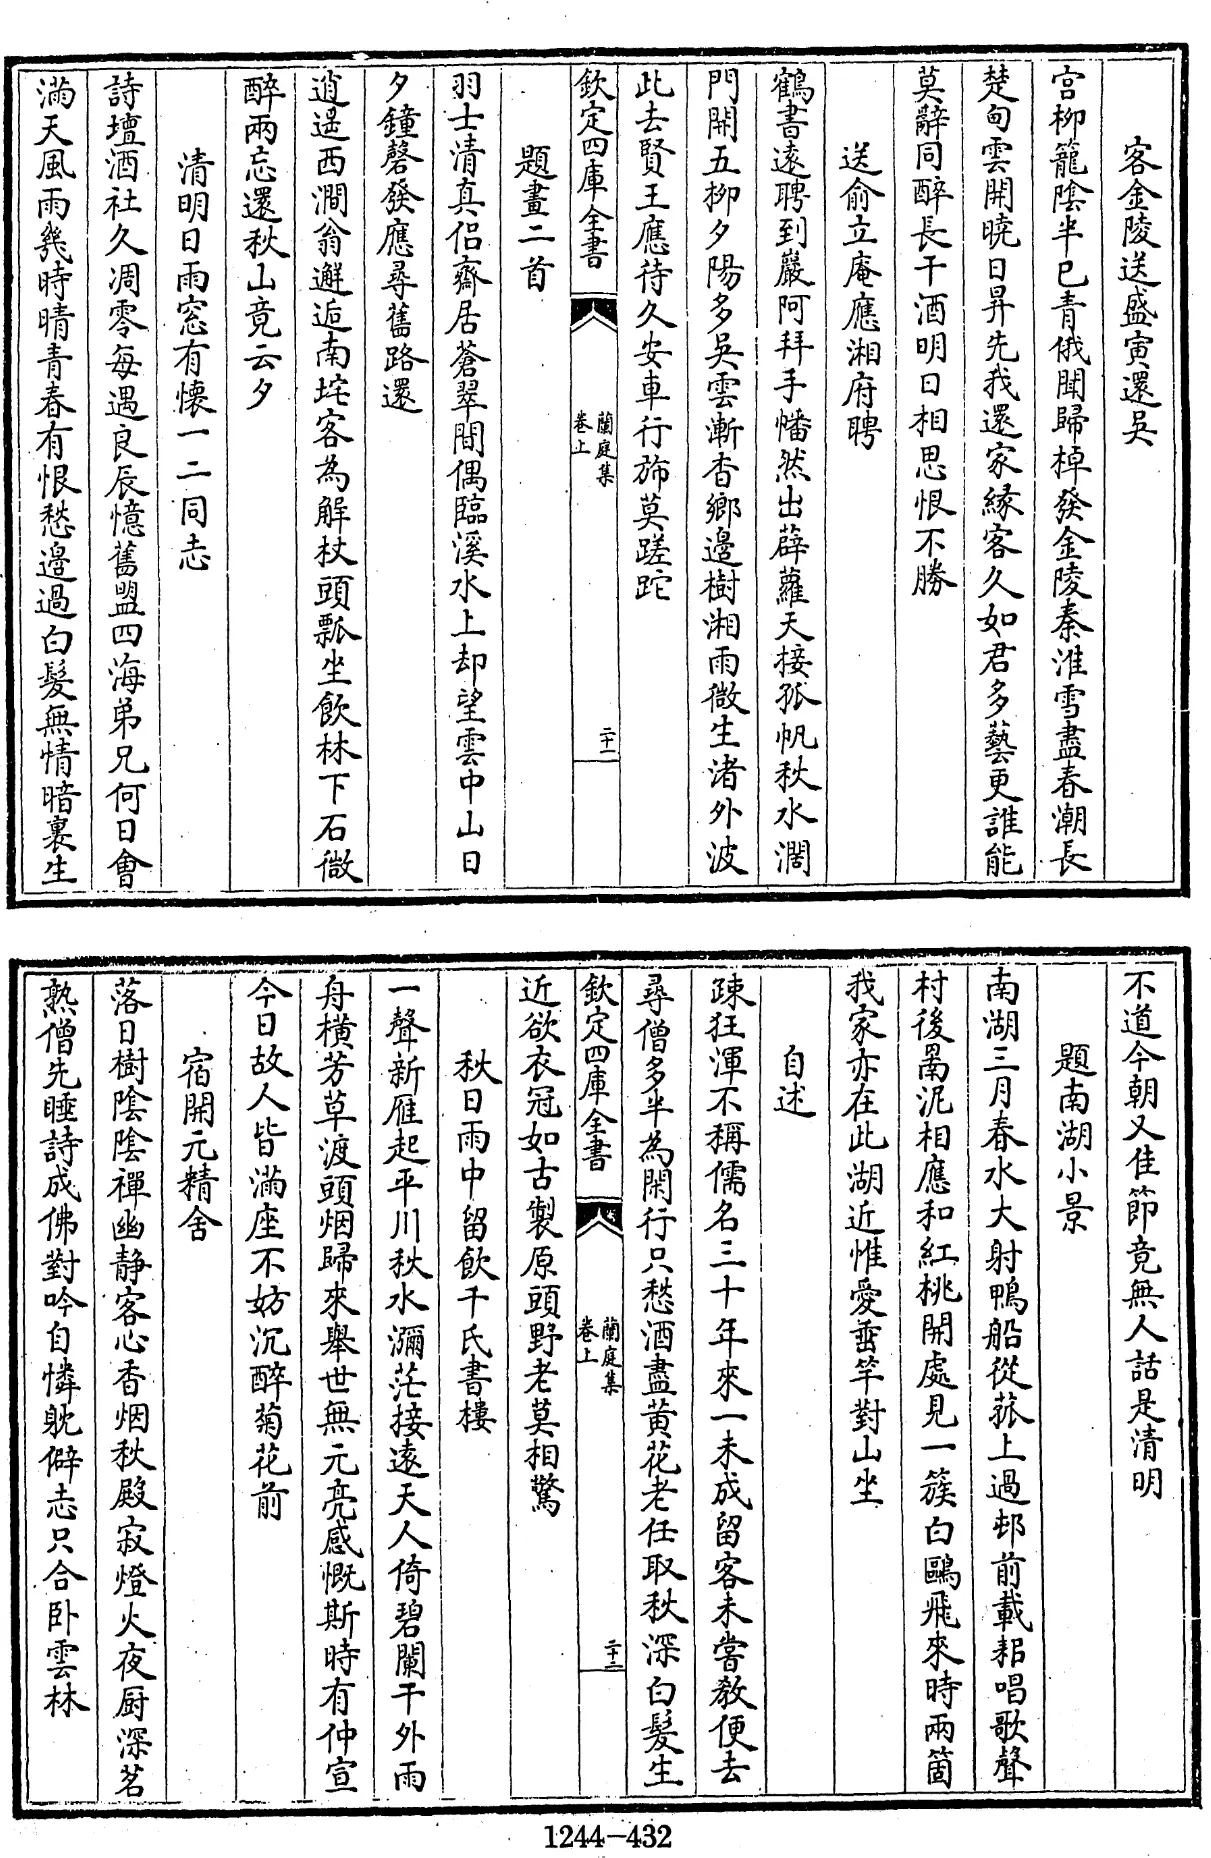 客金陵送盛寅還吳
宮柳籠陰半已青俄聞歸棹發金陵秦淮雪盡春潮長
楚甸雲開曉日昇先我還家緣客久如君多藝更誰能
莫辭同醉長干酒明日相思恨不勝
送俞立庵應湘府聘
鶴書遠聘到巖阿拜手幡然出薜蘿天接孤帆秋水濶
門開五柳夕陽多吳雲漸杳鄉邊樹湘雨微生渚外波
此去賢王應待久安車行斾莫蹉跎
欽定四庫全書
蘭庭集
卷上
二十一
題畫二首
羽士清真侣齋居蒼翠間偶臨溪水上却望雲中山日
夕鐘磬發應尋舊路還
逍遥西澗翁邂逅南垞客為解杖頭瓢坐飲林下石微
醉兩忘還秋山竟云夕
清明日雨窓有懷一二同志
詩壇酒社久凋零每遇良辰憶舊盟四海弟兄何日會
滿天風雨幾時晴青春有恨愁邊過白髮無情暗裏生
不道今朝又佳節竟無人話是清明
題南湖小景
南湖三月春水大射鴨船從菰上過邨前載耜唱歌聲
村後罱泥相應和紅桃開處見一簇白鷗飛來時兩箇
我家亦在此湖近惟愛垂竿對山坐
自述
疎狂渾不稱儒名三十年來一未成留客未嘗教便去
尋僧多半為閑行只愁酒盡黄花老任取秋深白髮生
欽定四庫全書
蘭庭集
卷上
二十二
近欲衣冠如古製原頭野老莫相驚
秋日雨中留飲干氏書樓
一聲新雁起平川秋水瀰茫接遠天人倚碧闌干外雨
舟横芳草渡頭烟歸來舉世無元亮感慨斯時有仲宣
今日故人皆滿座不妨沉醉菊花前
宿開元精舍
落日樹陰陰禪幽静客心香烟秋殿寂燈火夜厨深茗
熟僧先睡詩成佛對吟自憐躭僻志只合卧雲林
1244-432